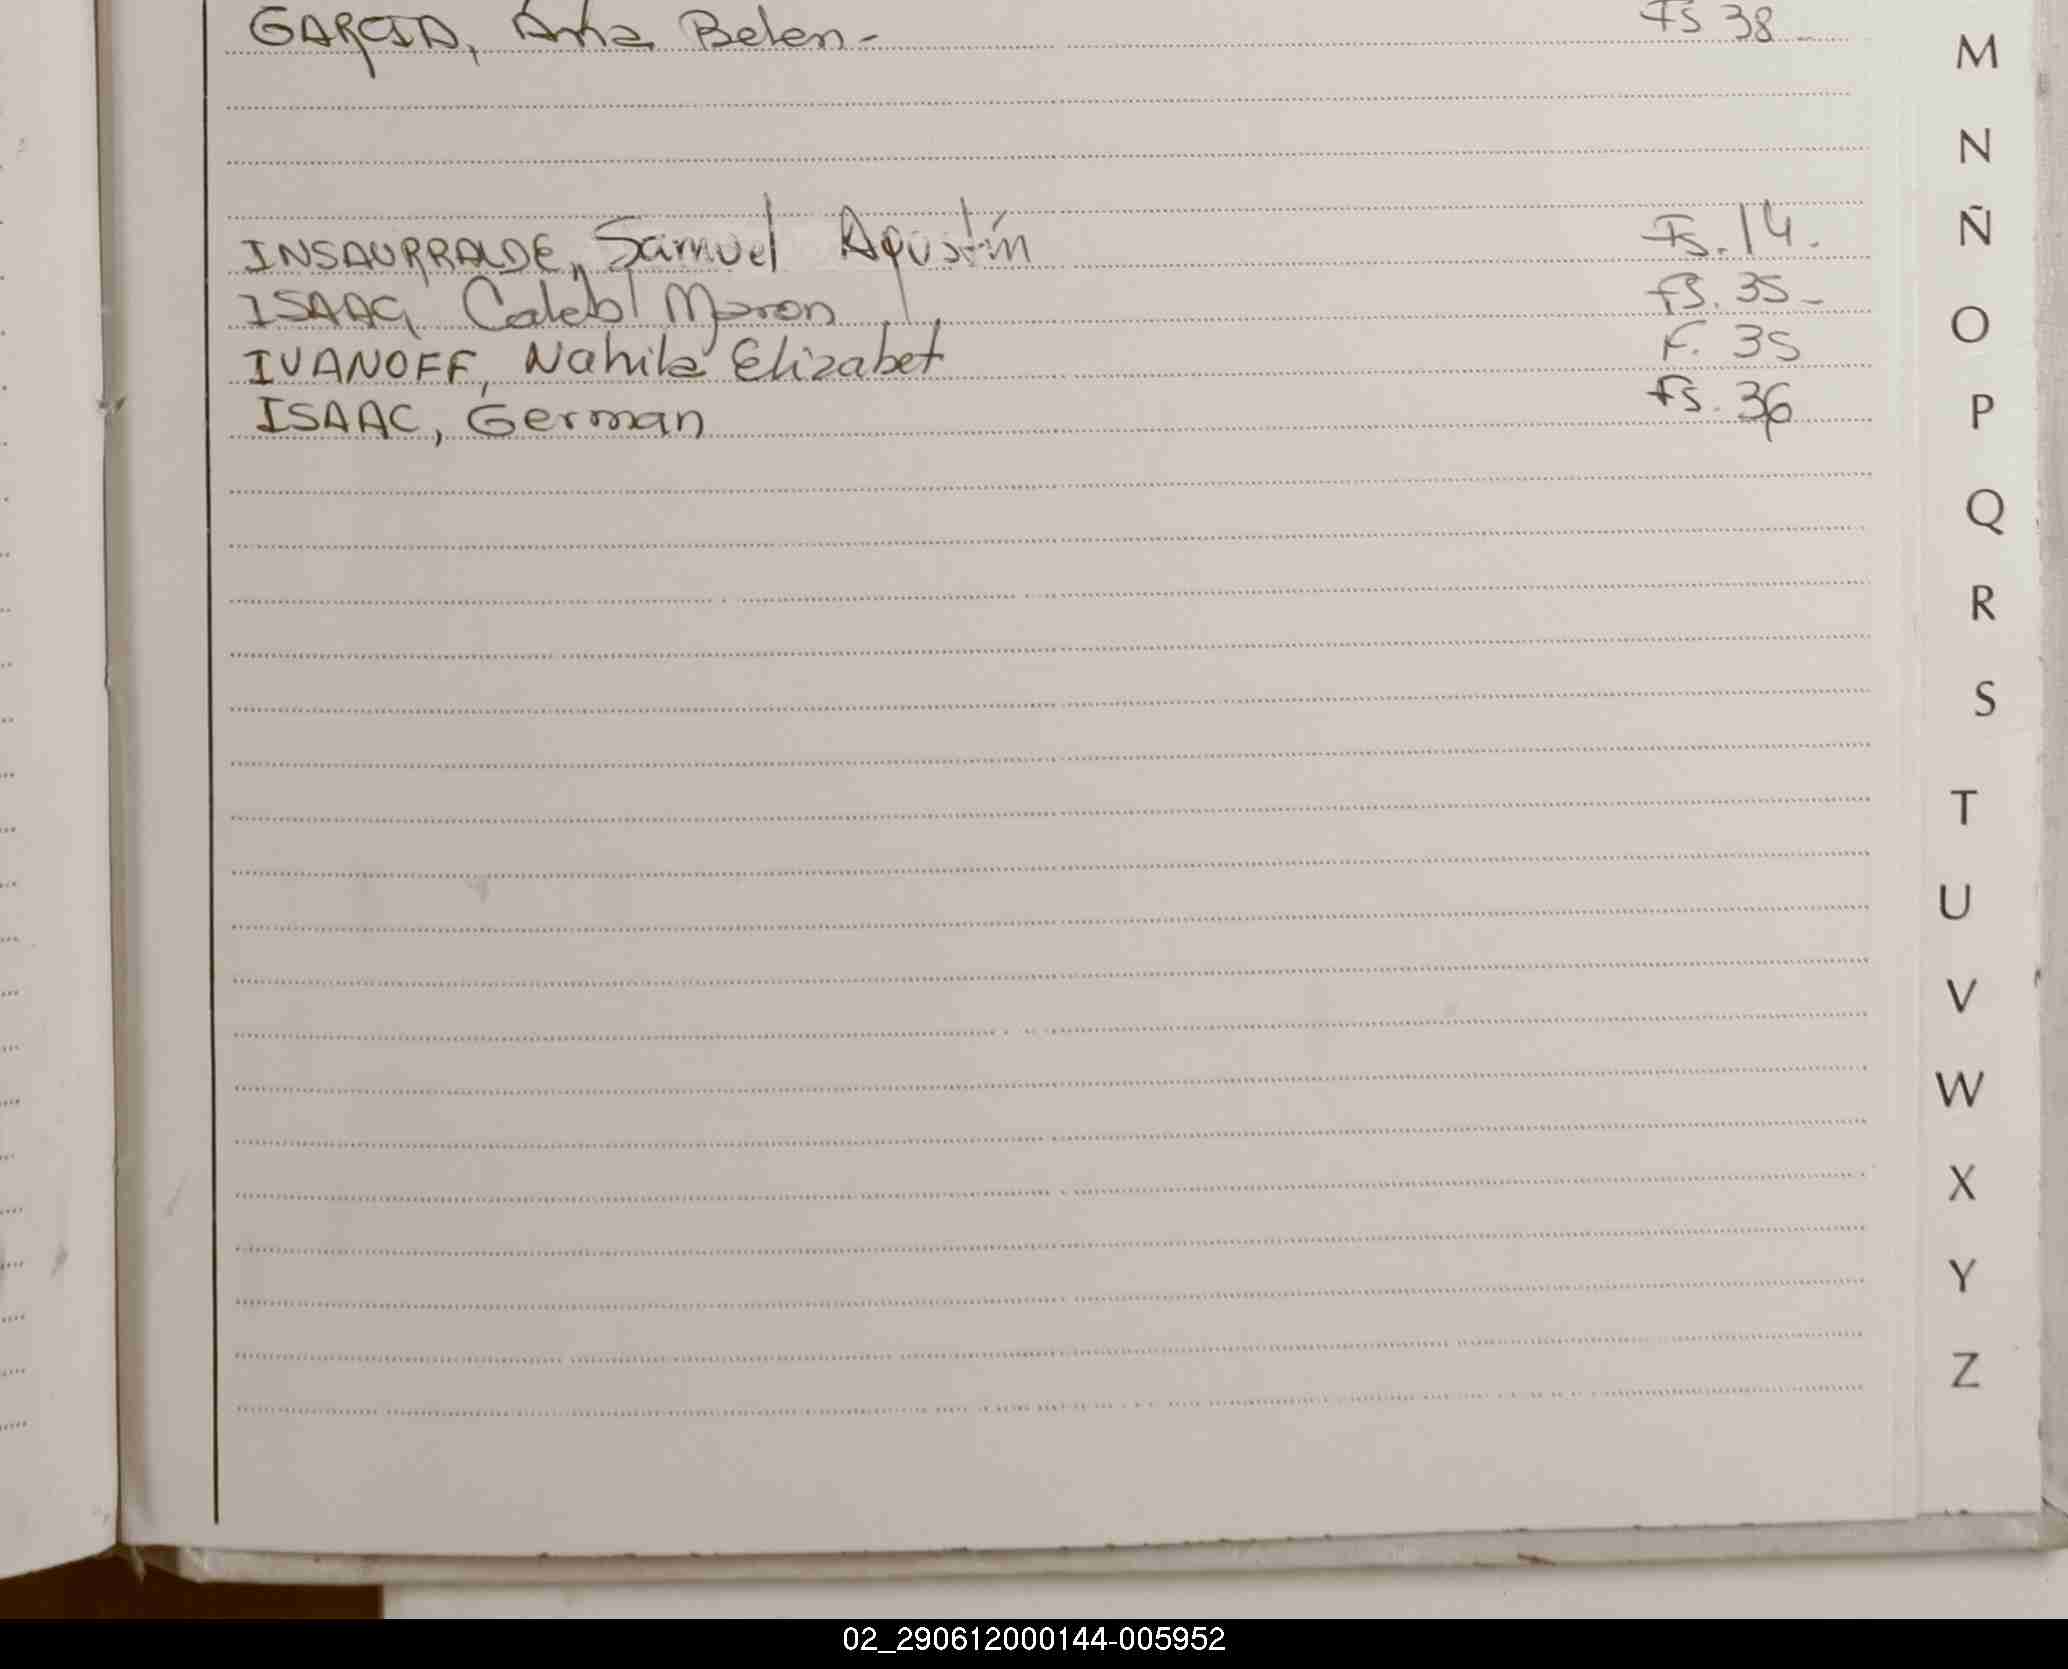 GARCIA, Ana Belen- Fs 38-
INSAURRALDE, Samuel Agustín Fs. 14.
ISAAC, Caleb Maron fs. 35-
IVANOFF, Nahila Elizabet F. 35
ISAAC, German fs. 36
M
N
Ñ
O
P
Q
R
S
T
U
V
W
X
Y
Z
02_290612000144-005952